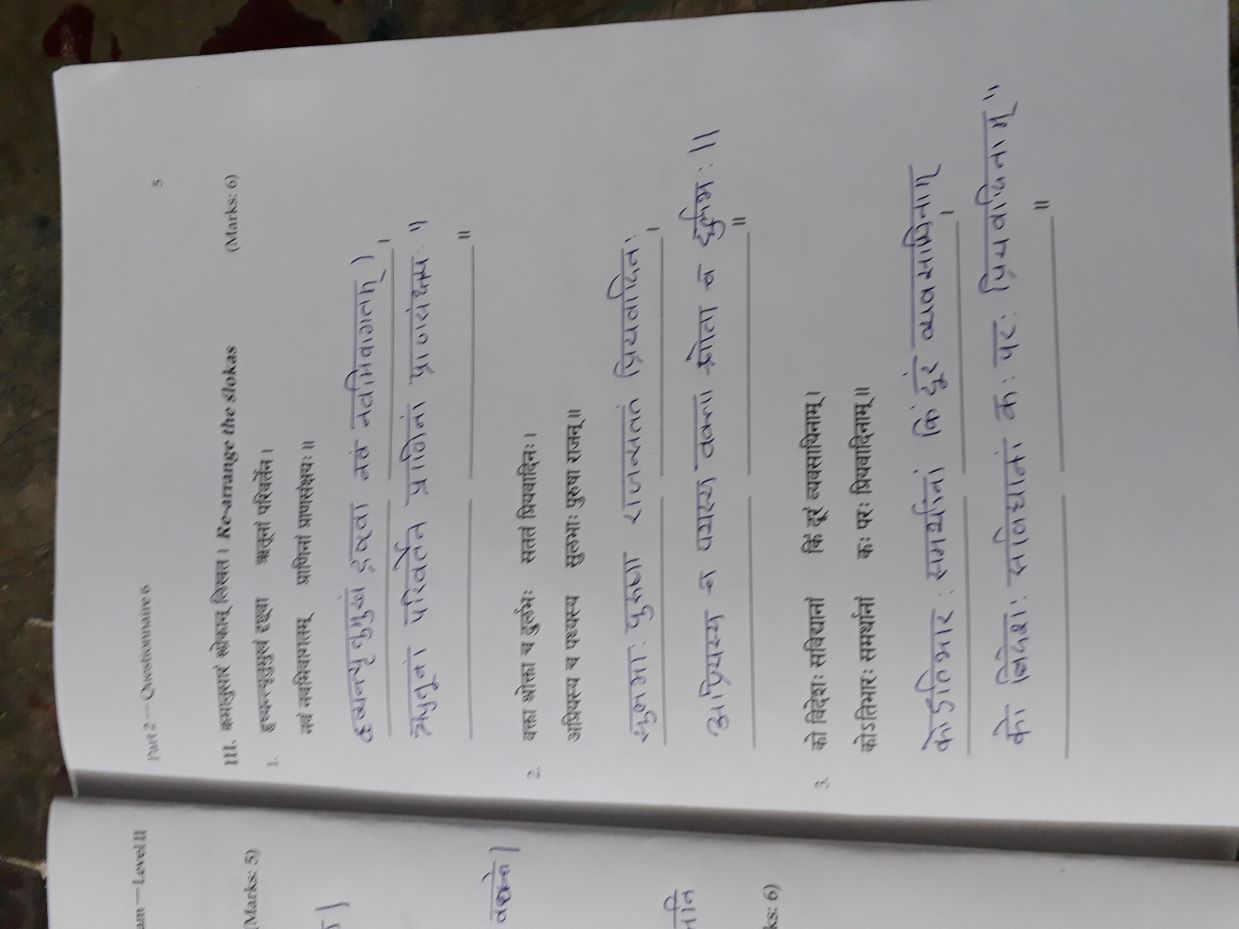 am — Level II
Part 2 — Questionnaire 6
5
(Marks: 5)
III. क्रमानुसारं श्लोकान् लिखत। Re-arrange the ślokas (Marks: 6)
1. हृष्यन्त्यृतुमुखं दृष्ट्वा ऋतूनां परिवर्तेन।
नवं नवमिवागतम् प्राणिनां प्राणसंक्षयः॥
हृष्यन्त्यृतुमुखं दृष्ट्वा नवं नवमिवागतम्।
।
ऋतूनां परिवर्तेन प्राणिनां प्राणसंक्षय ॥
॥
2. वक्ता श्रोक्ता च दुर्लभः सततं प्रियवादिनः।
अप्रियस्य च पथ्यस्य सुलभाः पुरुषा राजन्॥
सुलभाः पुरुषा राजन्सततं प्रियवादिनः
।
अप्रियस्य च पथस्य वक्ता श्रोता च दुर्लभः॥
॥
नि
ks: 6)
3. को विदेशः सविद्यानां किं दूरं व्यवसायिनाम्।
कोऽतिभारः समर्थानां कः परः प्रियवादिनाम्॥
कोऽतिभारः समर्थानां किं दूरं व्यवसायिनाम्
।
को विदेशः सविद्यानां कः परः प्रियवादिनाम्॥
॥